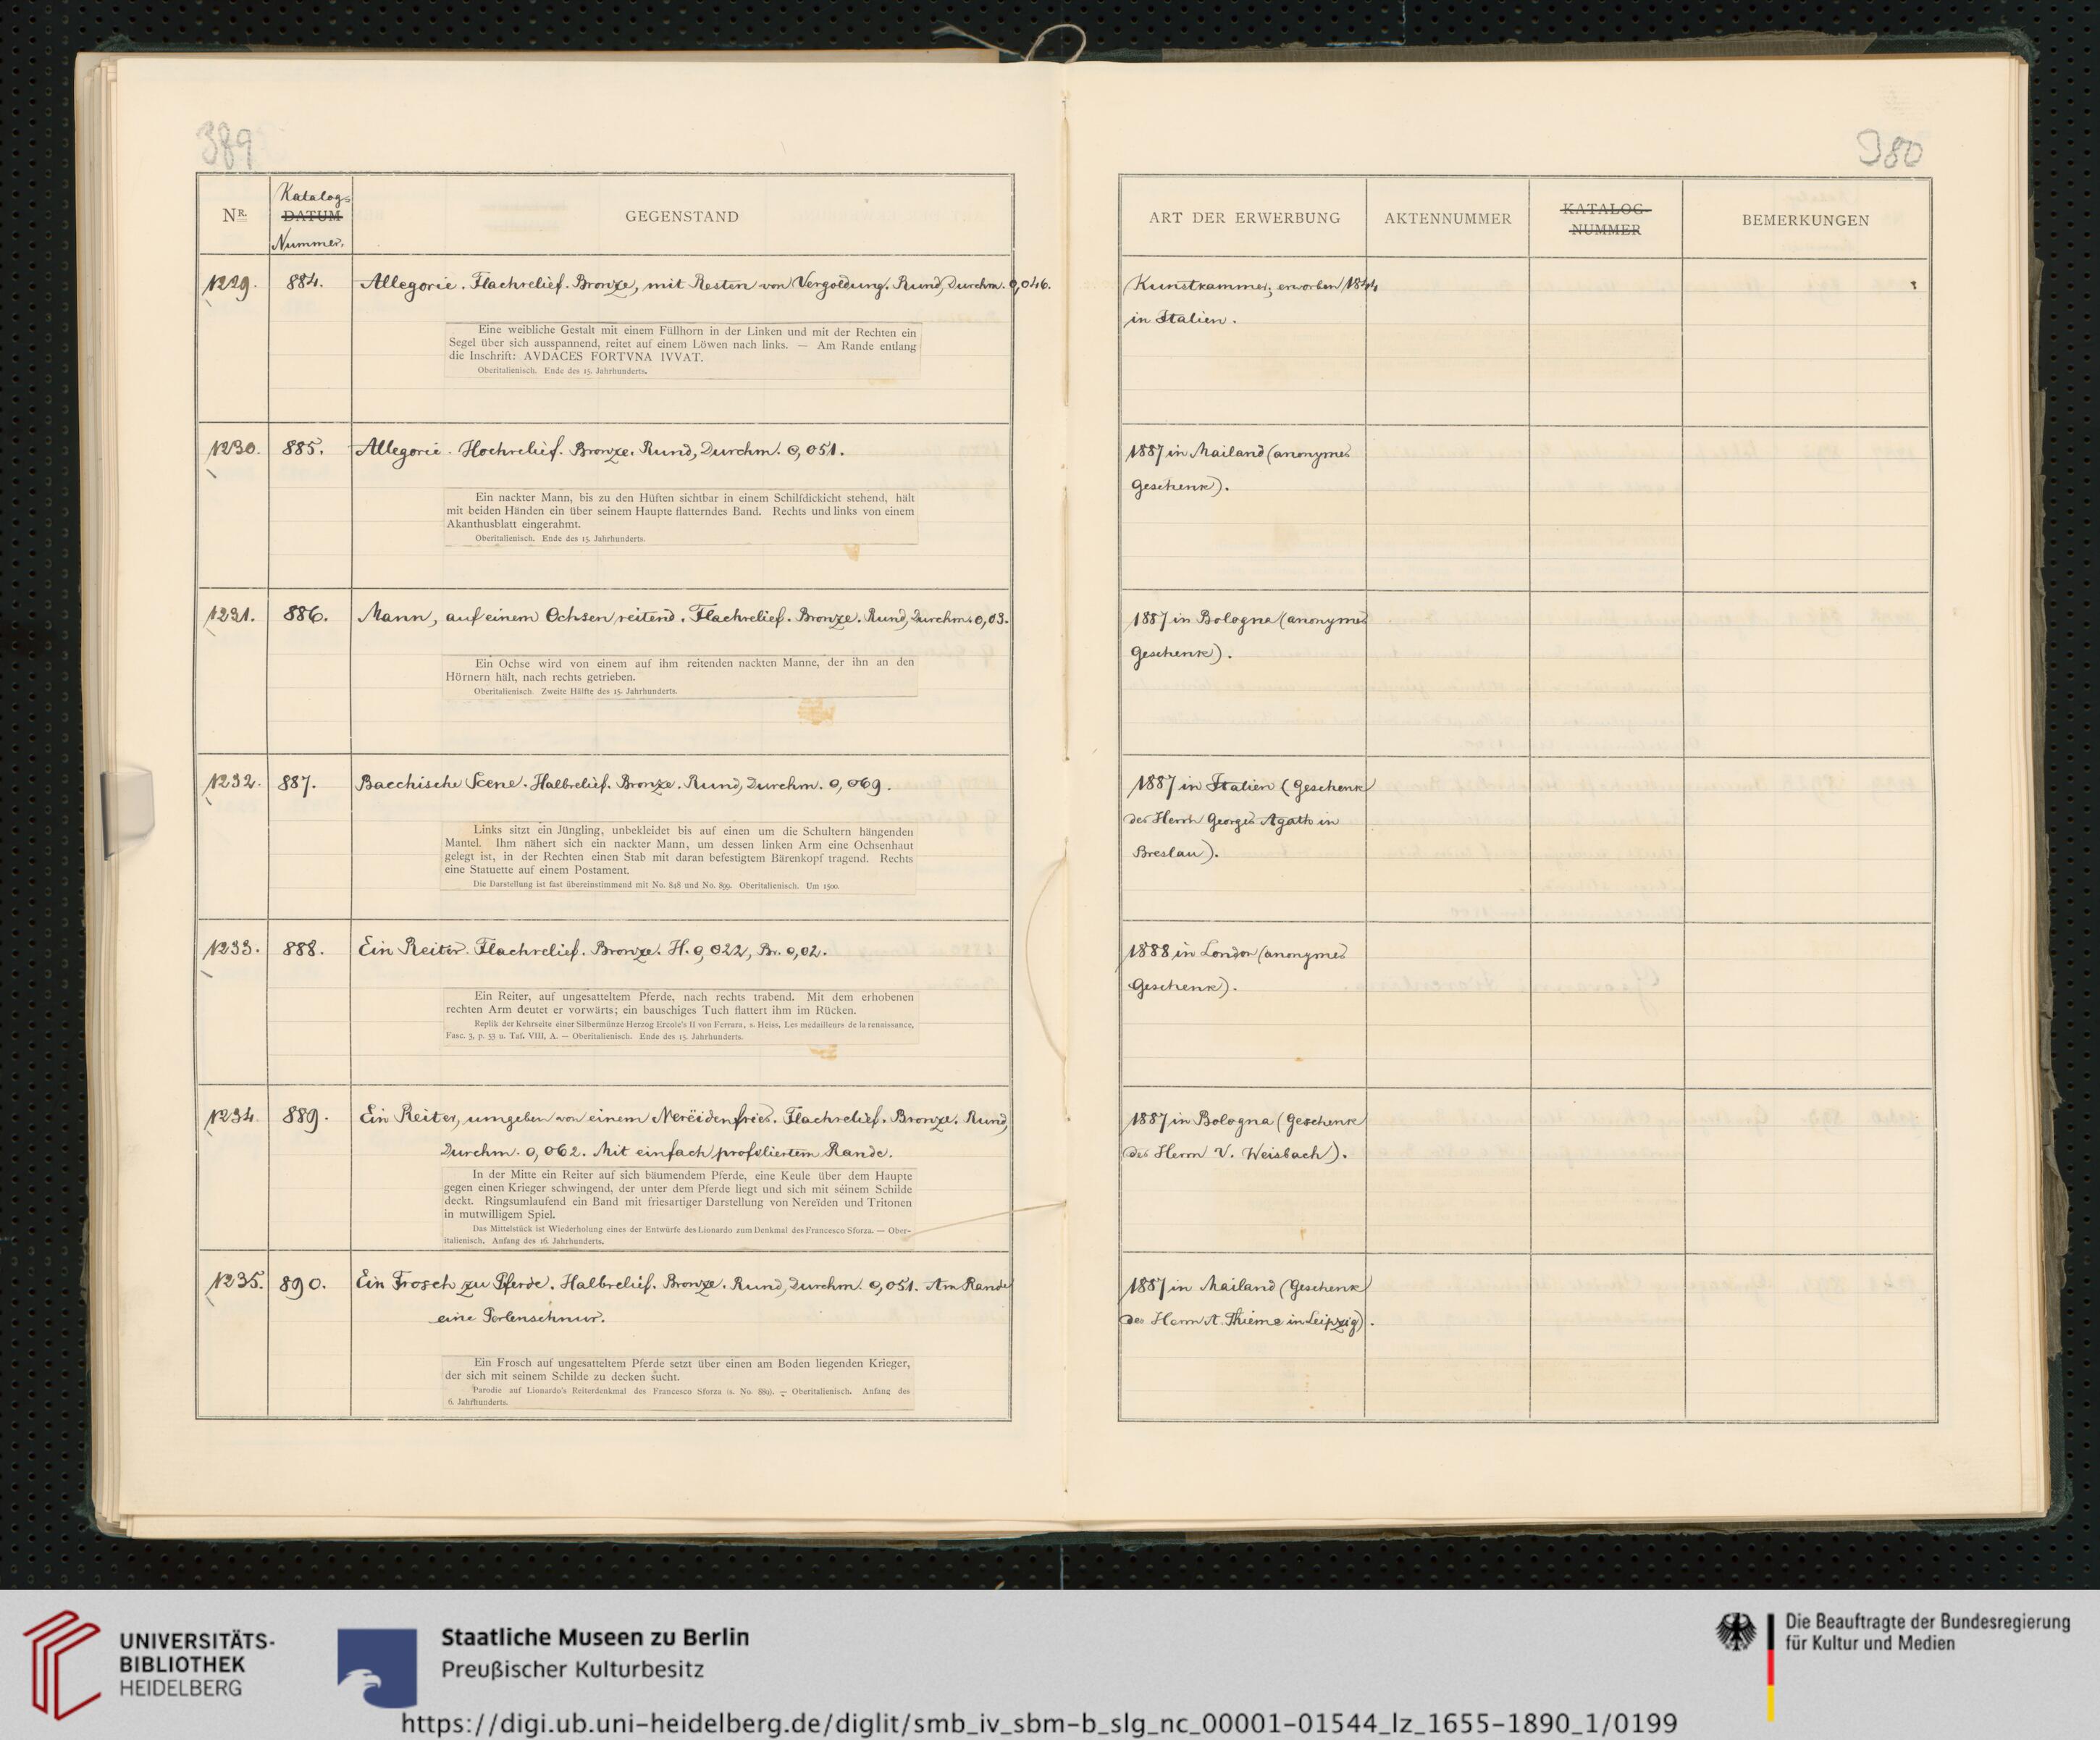 389
380
NR.
Katalog-
DATUM
Nummer.
GEGENSTAND
ART DER ERWERBUNG
AKTENNUMMER
KATALOG-
NUMMER
BEMERKUNGEN
1229. 884. Allegorie. Flachrelief. Bronze, mit Resten von Vergoldung. Rund, Durchm. 0,046.
Eine weibliche Gestalt mit einem Füllhorn in der Linken und mit der Rechten ein
Segel über sich ausspannend, reitet auf einem Löwen nach links. — Am Rande entlang
die Inschrift: AVDACES FORTVNA IVVAT.
Oberitalienisch. Ende des 15. Jahrhunderts.
Kunstkammer; erworben 1844
in Italien.
1230. 885. Allegorie. Hochrelief. Bronze. Rund, Durchm. 0,051.
Ein nackter Mann, bis zu den Hüften sichtbar in einem Schilfdickicht stehend, hält
mit beiden Händen ein über seinem Haupte flatterndes Band. Rechts und links von einem
Akanthusblatt eingerahmt.
Oberitalienisch. Ende des 15. Jahrhunderts.
1887 in Mailand (anonymes
Geschenk).
1231. 886. Mann, auf einem Ochsen reitend. Flachrelief. Bronze. Rund, Durchm. 0,03.
Ein Ochse wird von einem auf ihm reitenden nackten Manne, der ihn an den
Hörnern hält, nach rechts getrieben.
Oberitalienisch. Zweite Hälfte des 15. Jahrhunderts.
1887 in Bologna (anonymes
Geschenk).
1232. 887. Bacchische Scene. Halbrelief. Bronze. Rund, Durchm. 0,069.
Links sitzt ein Jüngling, unbekleidet bis auf einen um die Schultern hängenden
Mantel. Ihm nähert sich ein nackter Mann, um dessen linken Arm eine Ochsenhaut
gelegt ist, in der Rechten einen Stab mit daran befestigtem Bärenkopf tragend. Rechts
eine Statuette auf einem Postament.
Die Darstellung ist fast übereinstimmend mit No. 848 und No. 899. Oberitalienisch. Um 1500.
1887 in Italien (Geschenk
des Herrn Georges Agath in
Breslau).
1233. 888. Ein Reiter. Flachrelief. Bronze. H. 0,022, Br. 0,02.
Ein Reiter, auf ungesatteltem Pferde, nach rechts trabend. Mit dem erhobenen
rechten Arm deutet er vorwärts; ein bauschiges Tuch flattert ihm im Rücken.
Replik der Kehrseite einer Silbermünze Herzog Ercole's II von Ferrara, s. Heiss, Les médailleurs de la renaissance,
Fasc. 3, p. 53 u. Taf. VIII, A. — Oberitalienisch. Ende des 15. Jahrhunderts.
1888 in London (anonymes
Geschenk).
1234. 889. Ein Reiter, umgeben von einem Nereïdenfries. Flachrelief. Bronze. Rund,
Durchm. 0,062. Mit einfach profiliertem Rande.
In der Mitte ein Reiter auf sich bäumendem Pferde, eine Keule über dem Haupte
gegen einen Krieger schwingend, der unter dem Pferde liegt und sich mit seinem Schilde
deckt. Ringsumlaufend ein Band mit friesartiger Darstellung von Nereïden und Tritonen
in mutwilligem Spiel.
Das Mittelstück ist Wiederholung eines der Entwürfe des Lionardo zum Denkmal des Francesco Sforza. — Ober-
italienisch. Anfang des 16. Jahrhunderts.
1887 in Bologna (Geschenk
des Herrn V. Weisbach).
1235. 890. Ein Frosch zu Pferde. Halbrelief. Bronze. Rund, Durchm. 0,051. Am Rande
eine Perlenschnur.
Ein Frosch auf ungesatteltem Pferde setzt über einen am Boden liegenden Krieger,
der sich mit seinem Schilde zu decken sucht.
Parodie auf Lionardo's Reiterdenkmal des Francesco Sforza (s. No. 889). — Oberitalienisch. Anfang des
6. Jahrhunderts.
1887 in Mailand (Geschenk
des Herrn A. Thieme in Leipzig).
UNIVERSITÄTS-
BIBLIOTHEK
HEIDELBERG
Staatliche Museen zu Berlin
Preußischer Kulturbesitz
Die Beauftragte der Bundesregierung
für Kultur und Medien
https://digi.ub.uni-heidelberg.de/diglit/smb_iv_sbm-b_slg_nc_00001-01544_lz_1655-1890_1/0199